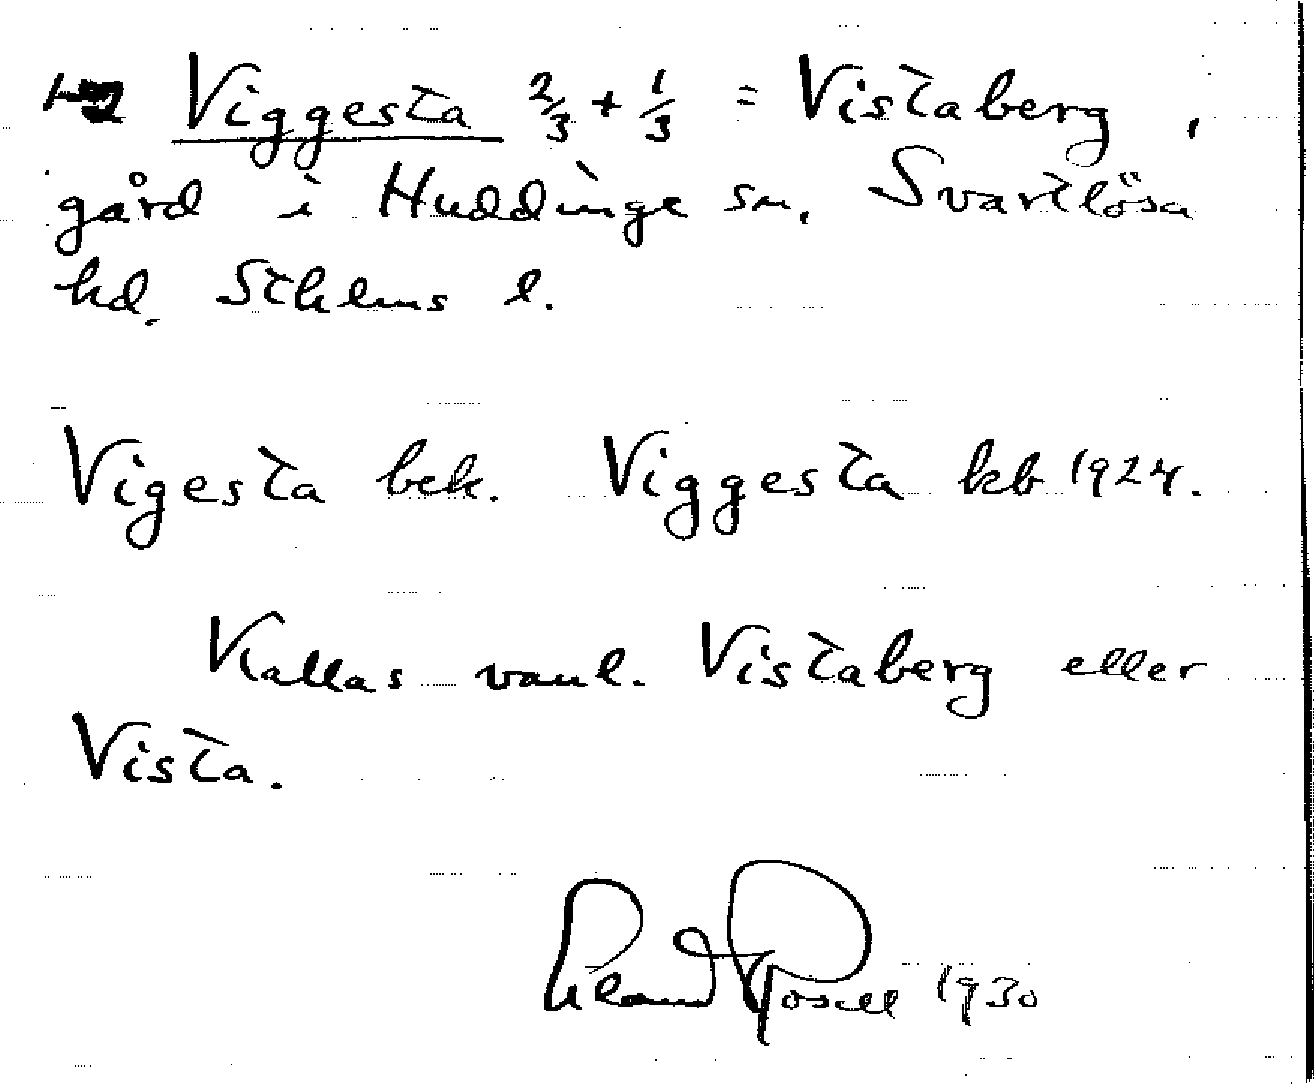 1-2 Viggesta 2/3 + 1/3 = Vistaberg,
gård i Huddinge sn, Svartlösa
hd. Sthlms l.
Vigesta bek. Viggesta kb 1924.
Kallas vanl. Vistaberg eller
Vista.
1930